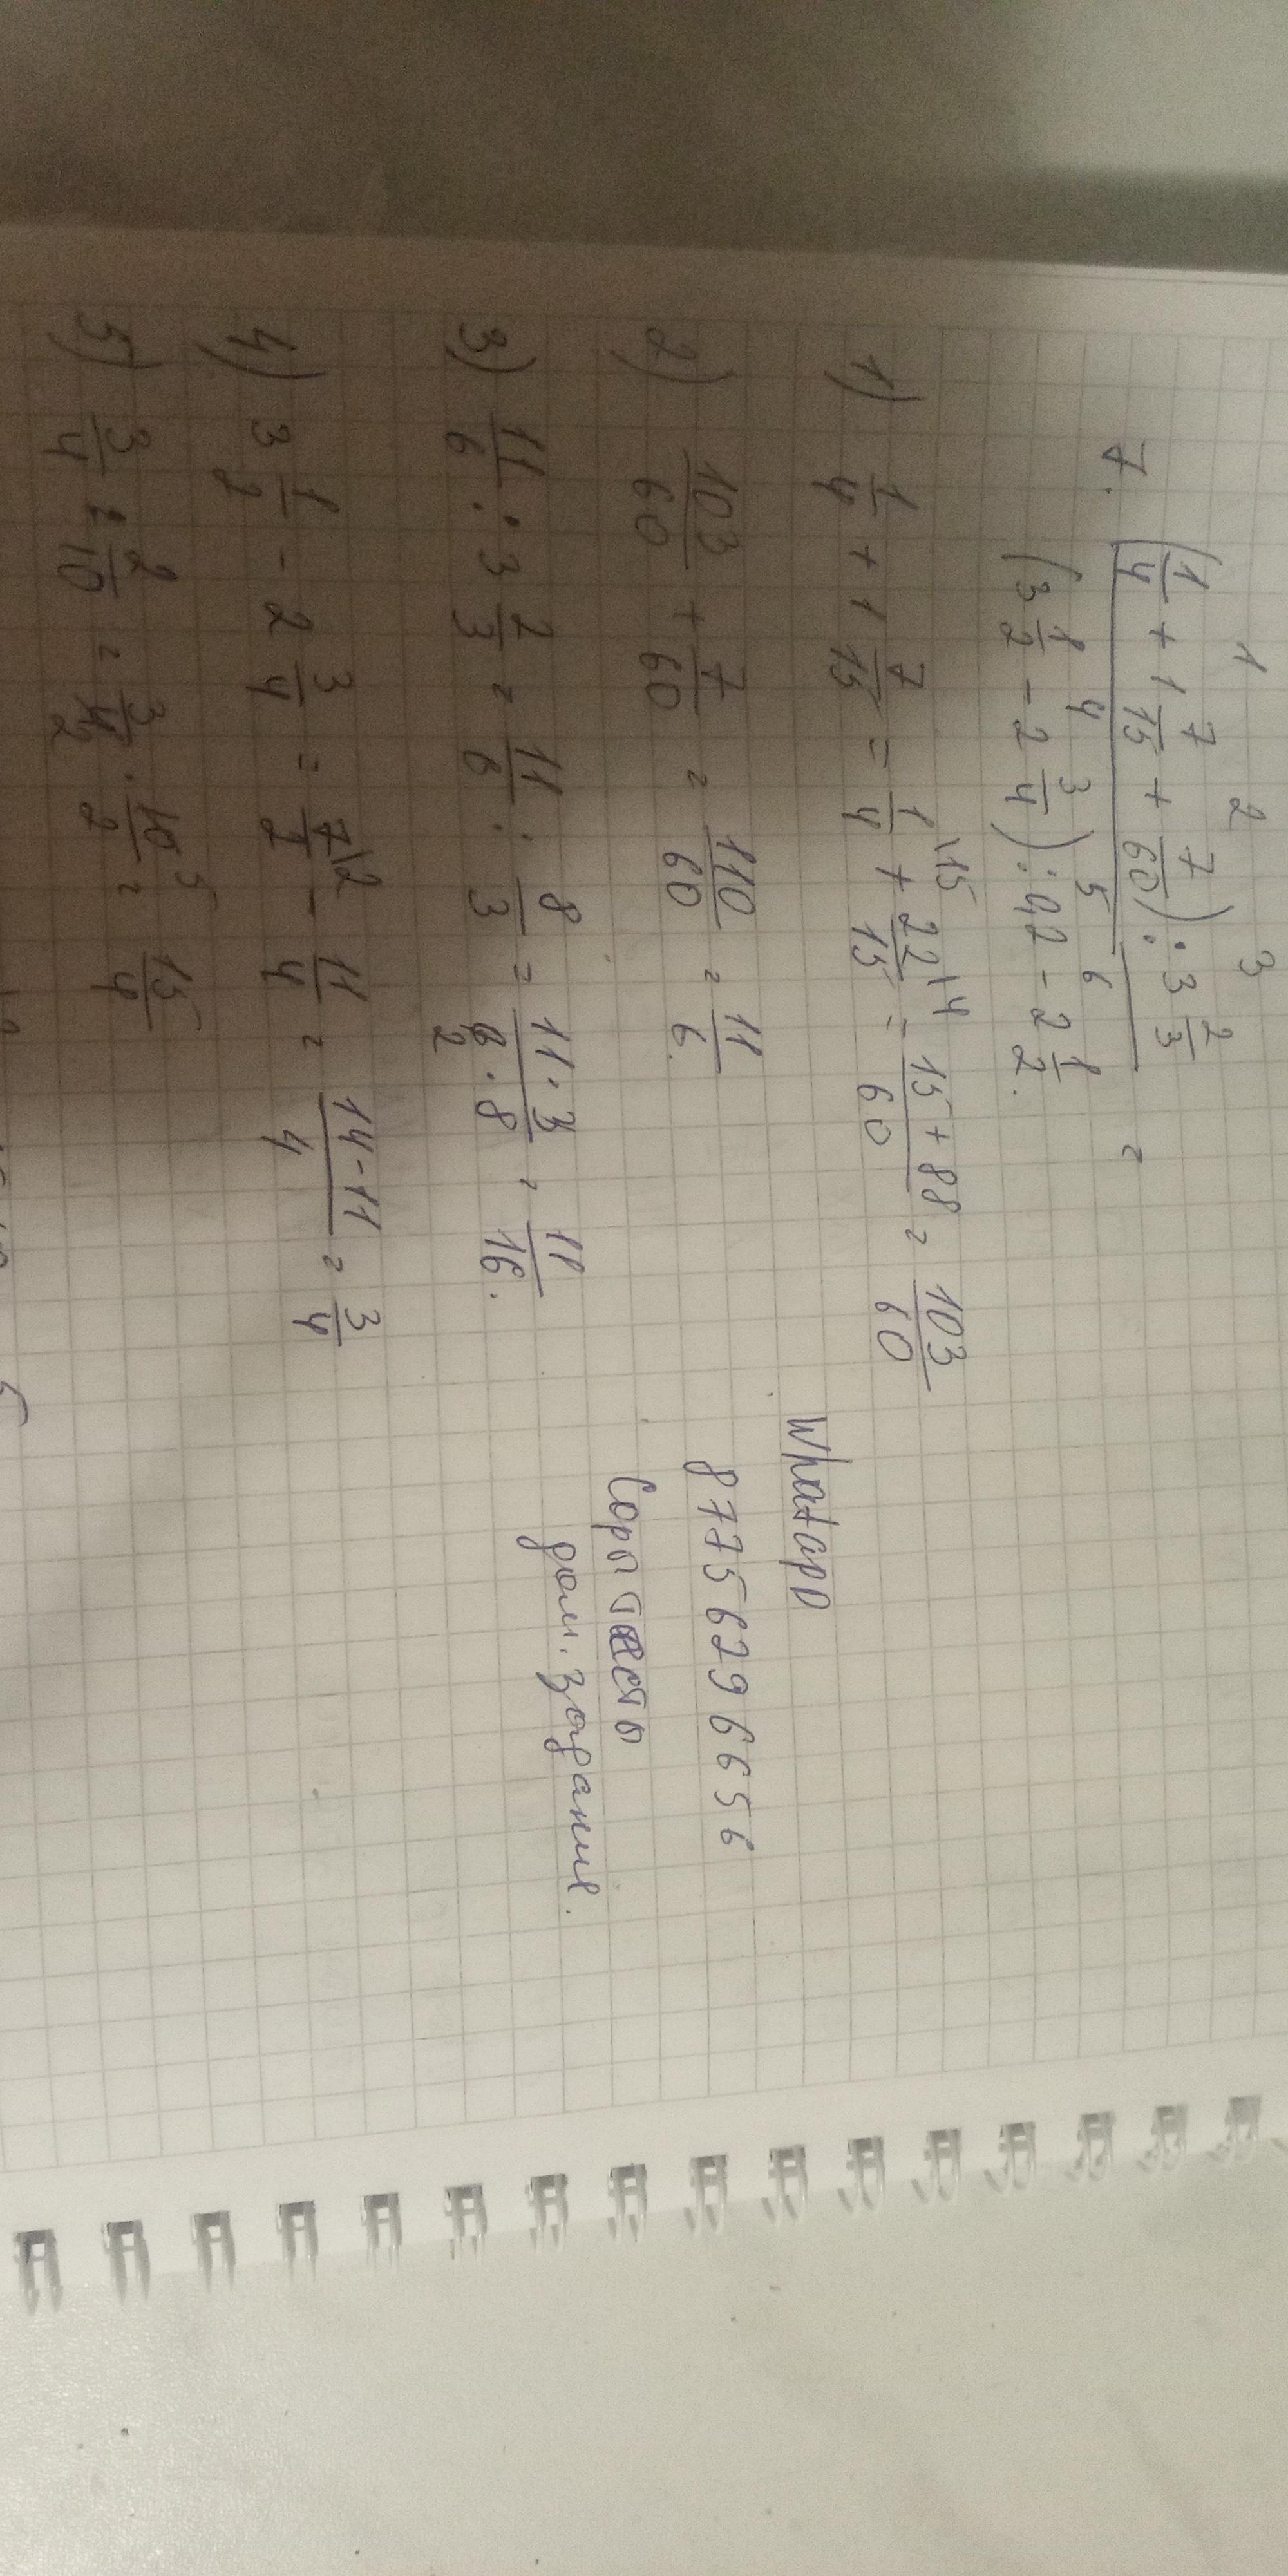 1 2 3
7. (1/4 + 1 7/15 + 7/60) : 3 2/3 =
4 5 6
(3 1/2 - 2 3/4) : 0,2 - 2 1/2.
1) 1/4 + 1 7/15 = 1/4\15 + 22/15\4 = 15+88/60 = 103/60
2) 103/60 + 7/60 = 110/60 = 11/6.
3) 11/6 : 3 2/3 = 11/6 : 8/3 = 11·3/6·8 2 = 11/16.
4) 3 1/2 - 2 3/4 = 7/2\2 - 11/4 = 14-11/4 = 3/4
5) 3/4 : 2/10 = 3/4 2 · 10 5/2 = 15/4
Whatapp
87756296656
дом. задание.